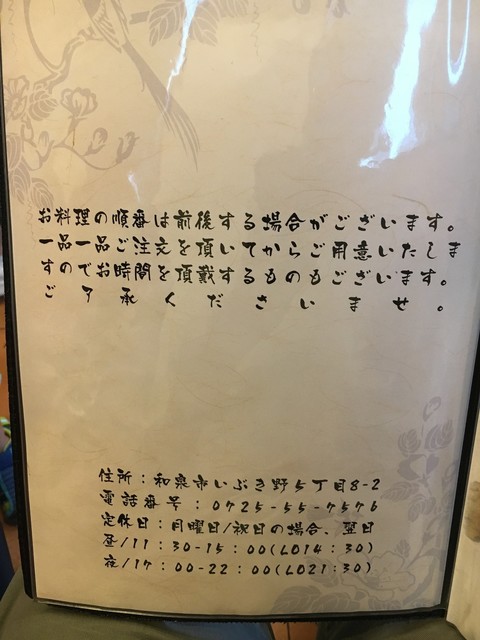 お料理の順番は前後する場合がございます。
一品一品ご注文を頂いてからご用意いたしま
すのでお時間を頂戴するものもございます。
ご了承くださいませ。
住所：和泉市いぶき野5丁目8-2
電話番号：0725-55-7576
定休日：月曜日/祝日の場合、翌日
昼/11：30-15：00(LO14：30)
夜/17：00-22：00(LO21：30)